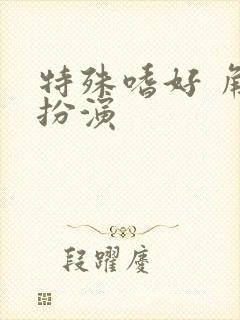 特殊嗜好 角
扮演
段躍慶